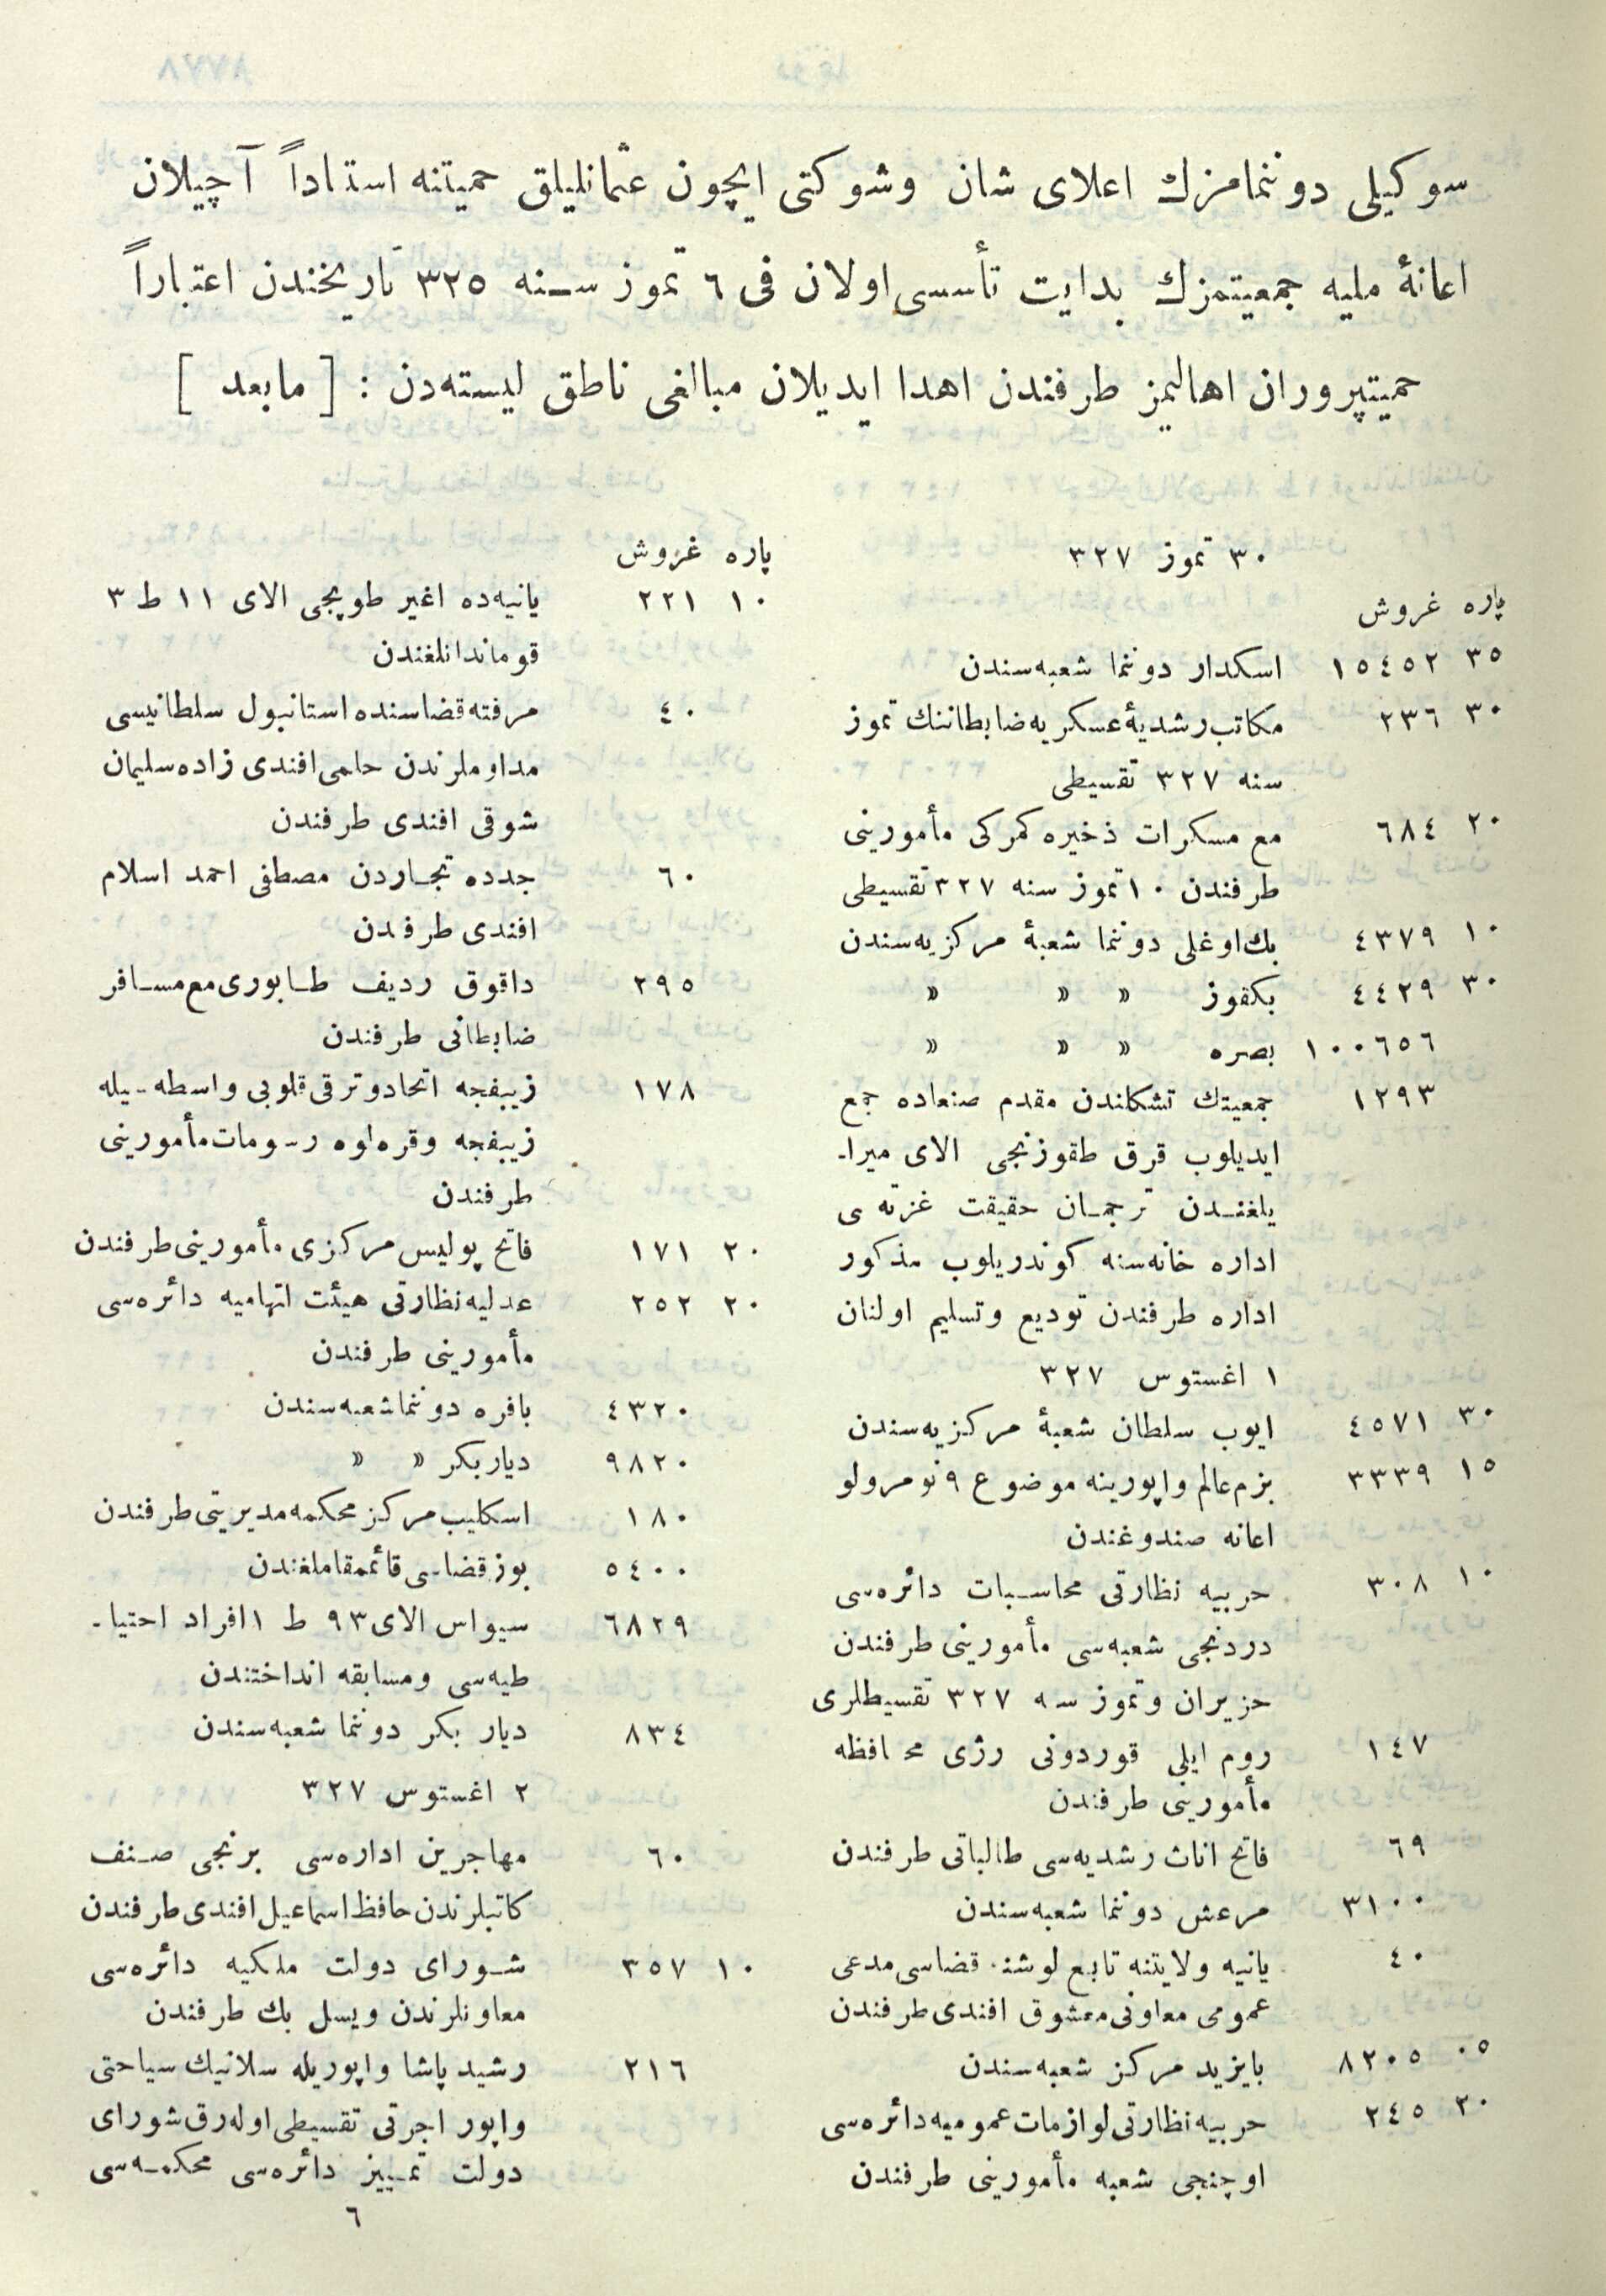 سوكيلى دوننمامزك اعلاى شان وشوكتى ايچون عثمانليلق حميتنه استناداً آچيلان
اعانهٔ مليه جمعيتمزك بدايت تأسسى اولان فى ٦ تموز سنه ٣٢٥ تاريخندن اعتباراً
حميتپروران اهاليمز طرفندن اهدا ايديلان مبالغى ناطق ليسته‌دن : [ مابعد ]
٣٠ تموز ٣٢٧
پاره غروش
٣٥ ١٥٤٥٢ اسكدار دوننما شعبه‌سندن
٣٠ ٢٣٦ مكاتب رشديهٔ عسكريه ضابطاننك تموز
سنه ٣٢٧ تقسيطى
٢٠ ٦٨٤ مع مسكرات ذخيره كمركى مأمورينى
طرفندن ١٠ تموز سنه ٣٢٧ تقسيطى
١٠ ٤٣٧٩ بك‌اوغلى دوننما شعبهٔ مركزيه‌سندن
٣٠ ٤٤٢٩ بكقوز » » »
١٠٠٦٥٦ بصره » » »
١٢٩٣ جمعيتك تشكلندن مقدم صنعاده جمع
ايديلوب قرق طقوزنجى الاى ميرا-
يلغندن ترجمان حقيقت غزته ى
اداره خانه‌سنه كوندريلوب مذكور
اداره طرفندن توديع وتسليم اولنان
١ اغستوس ٣٢٧
٣٠ ٤٥٧١ ايوب سلطان شعبهٔ مركزيه‌سندن
١٥ ٣٣٣٩ بزم عالم واپورينه موضوع ٩ نومرولو
اعانه صندوغندن
١٠ ٣٠٨ حربيه نظارتى محاسبات دائره‌سى
دردنجى شعبه‌سى مأمورينى طرفندن
حزيران وتموز سه ٣٢٧ تقسيطلرى
١٤٧ روم ايلى قوردونى رژى محافظه
مأمورينى طرفندن
٦٩ فاتح اناث رشديه‌سى طالباتى طرفندن
٣١٠٠ مرعش دوننما شعبه‌سندن
٤٠ يانيه ولايتنه تابع لوشنه قضاسى مدعى
عمومى معاونى معشوق افندى طرفندن
٠٥ ٨٢٠٥ بايزيد مركز شعبه‌سندن
٢٠ ٢٤٥ حربيه نظارتى لوازمات عموميه دائره‌سى
اوچنجى شعبه مأمورينى طرفندن
پاره غروش
١٠ ٢٢١ يانيه‌ده اغير طوپجى الاى ١١ ط ٣
قوماندانلغندن
٤٠ مرفته قضاسنده استانبول سلطانيسى
مداوملرندن حلمى افندى زاده سليمان
شوقى افندى طرفندن
٦٠ جدده تجاردن مصطفى احمد اسلام
افندى طرفدن
٢٩٥ داقوق رديف طابورى مع مسافر
ضابطانى طرفندن
١٧٨ زيبفجه اتحاد وترقى قلوبى واسطه-يله
زيبفجه وقره‌اوه رسومات مأمورينى
طرفندن
٢٠ ١٧١ فاتح پوليس مركزى مأمورينى طرفندن
٢٠ ٢٥٢ عدليه نظارتى هيئت اتهاميه دائره‌سى
مأمورينى طرفندن
٤٣٢٠ بافره دوننما شعبه‌سندن
٩٨٢٠ دياربكر » »
١٨٠ اسكليب مركز محكمه مديريتى طرفندن
٥٤٠٠ بوز قضاسى قائممقاملغندن
٦٨٢٩ سيواس الاى ٩٣ ط ١ افراد احتيا-
طيه‌سى ومسابقه انداختندن
٨٣٤ ديار بكر دوننما شعبه‌سندن
٢ اغستوس ٣٢٧
٦٠ مهاجرين اداره‌سى برنجى صنف
كاتبلرندن حافظ اسماعيل افندى طرفندن
١٠ ٣٥٧ شوراى دولت ملكيه دائره‌سى
معاونلرندن ويسل بك طرفندن
٢١٦ رشيد پاشا واپوريله سلانيك سياحتى
واپور اجرتى تقسيطى اوله‌رق شوراى
دولت تمييز دائره‌سى محكمه‌سى
٦